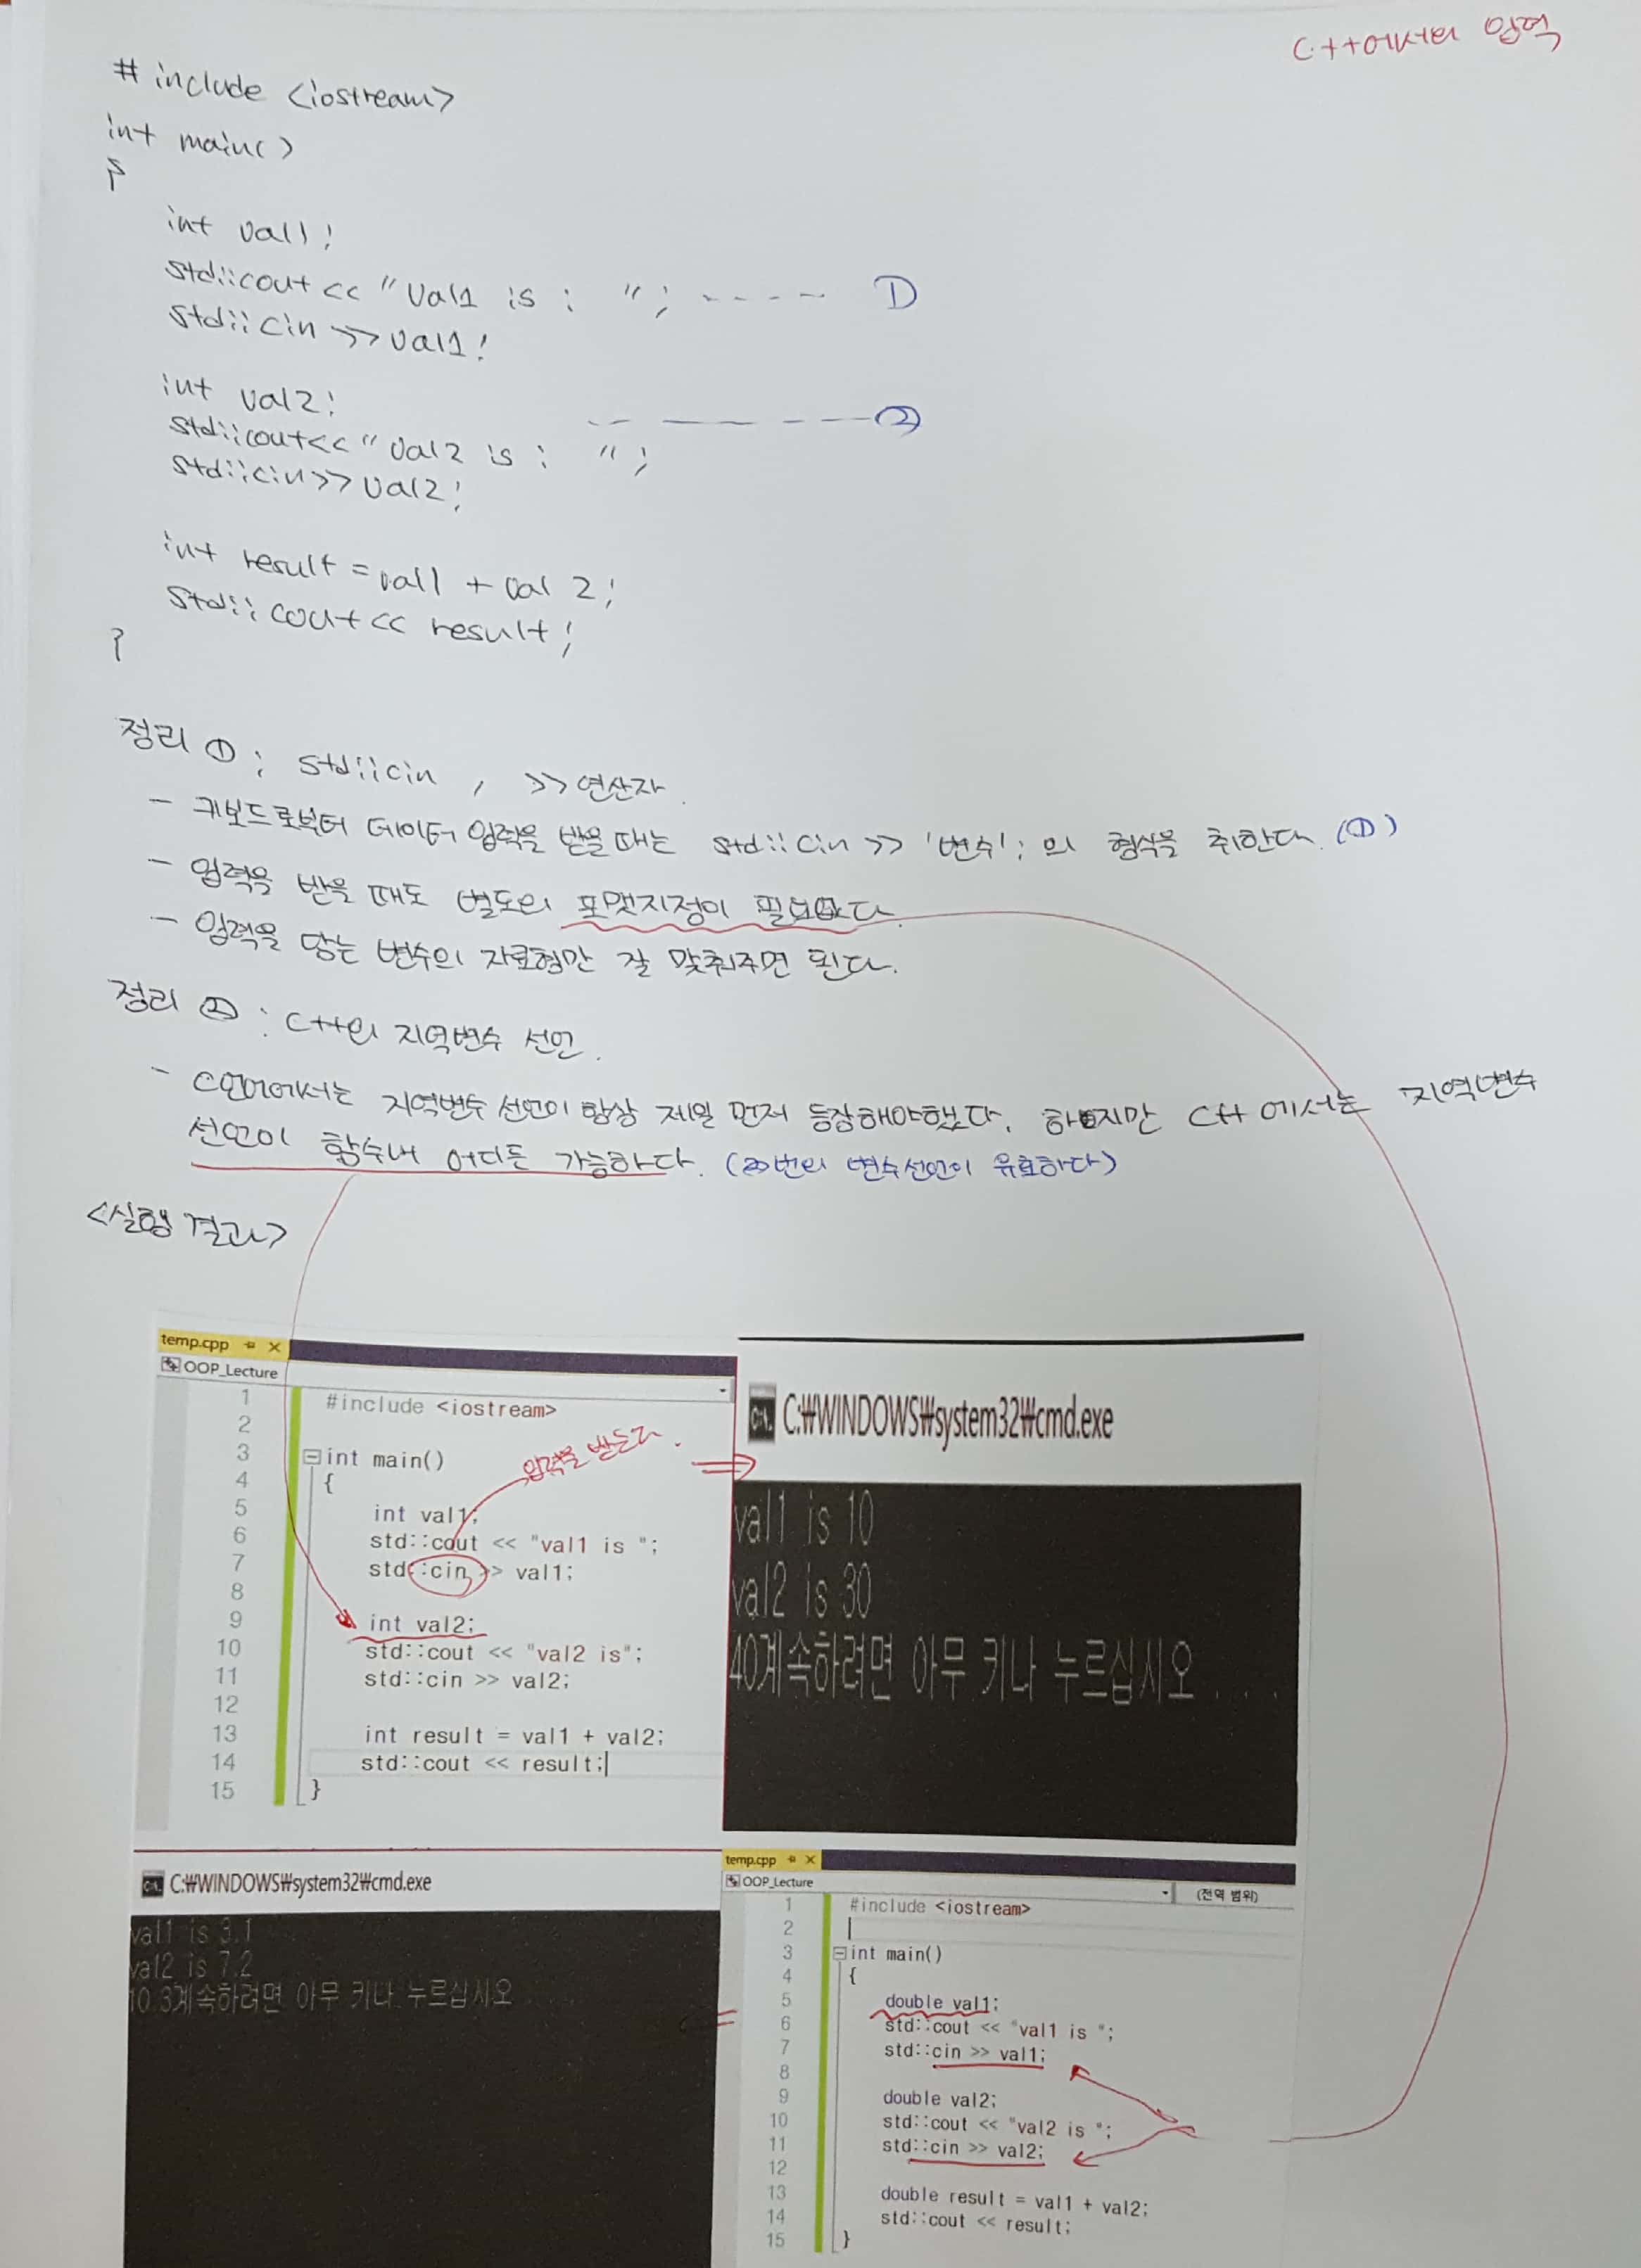 C++에서의 입력
# include <iostream>
int main()
{
int val1;
std::cout << "Val1 is : "; ---- ①
std::cin >> val1;
int val2; ---- ②
std::cout << "Val2 is : ";
std::cin >> val2;
int result = val1 + val 2;
std::cout << result;
}
정리 ① : std::cin , >> 연산자.
- 키보드로부터 데이터 입력을 받을 때는 std::cin >> '변수'; 의 형식을 취한다. (①)
- 입력을 받을 때도 별도의 포맷지정이 필요없다.
- 입력을 담는 변수의 자료형만 잘 맞춰주면 된다.
정리 ② : C++의 지역변수 선언.
- C언어에서는 지역변수 선언이 항상 제일 먼저 등장해야했다. 하지만 C++ 에서는 지역변수
선언이 함수내 어디든 가능하다. (②번의 변수선언이 유효하다)
<실행 결과>
temp.cpp
OOP_Lecture
1 #include <iostream>
2
3 int main()
4 {
입력을 받는다.
5 int val1;
6 std::cout << "val1 is ";
7 std::cin >> val1;
8
9 int val2;
10 std::cout << "val2 is";
11 std::cin >> val2;
12
13 int result = val1 + val2;
14 std::cout << result;
15 }
C:₩WINDOWS₩system32₩cmd.exe
val1 is 10
val2 is 30
40계속하려면 아무 키나 누르십시오 . . .
C:₩WINDOWS₩system32₩cmd.exe
val1 is 3.1
val2 is 7.2
10.3계속하려면 아무 키나 누르십시오
temp.cpp
OOP_Lecture (전역 범위)
1 #include <iostream>
2
3 int main()
4 {
5 double val1;
6 std::cout << "val1 is ";
7 std::cin >> val1;
8
9 double val2;
10 std::cout << "val2 is ";
11 std::cin >> val2;
12
13 double result = val1 + val2;
14 std::cout << result;
15 }